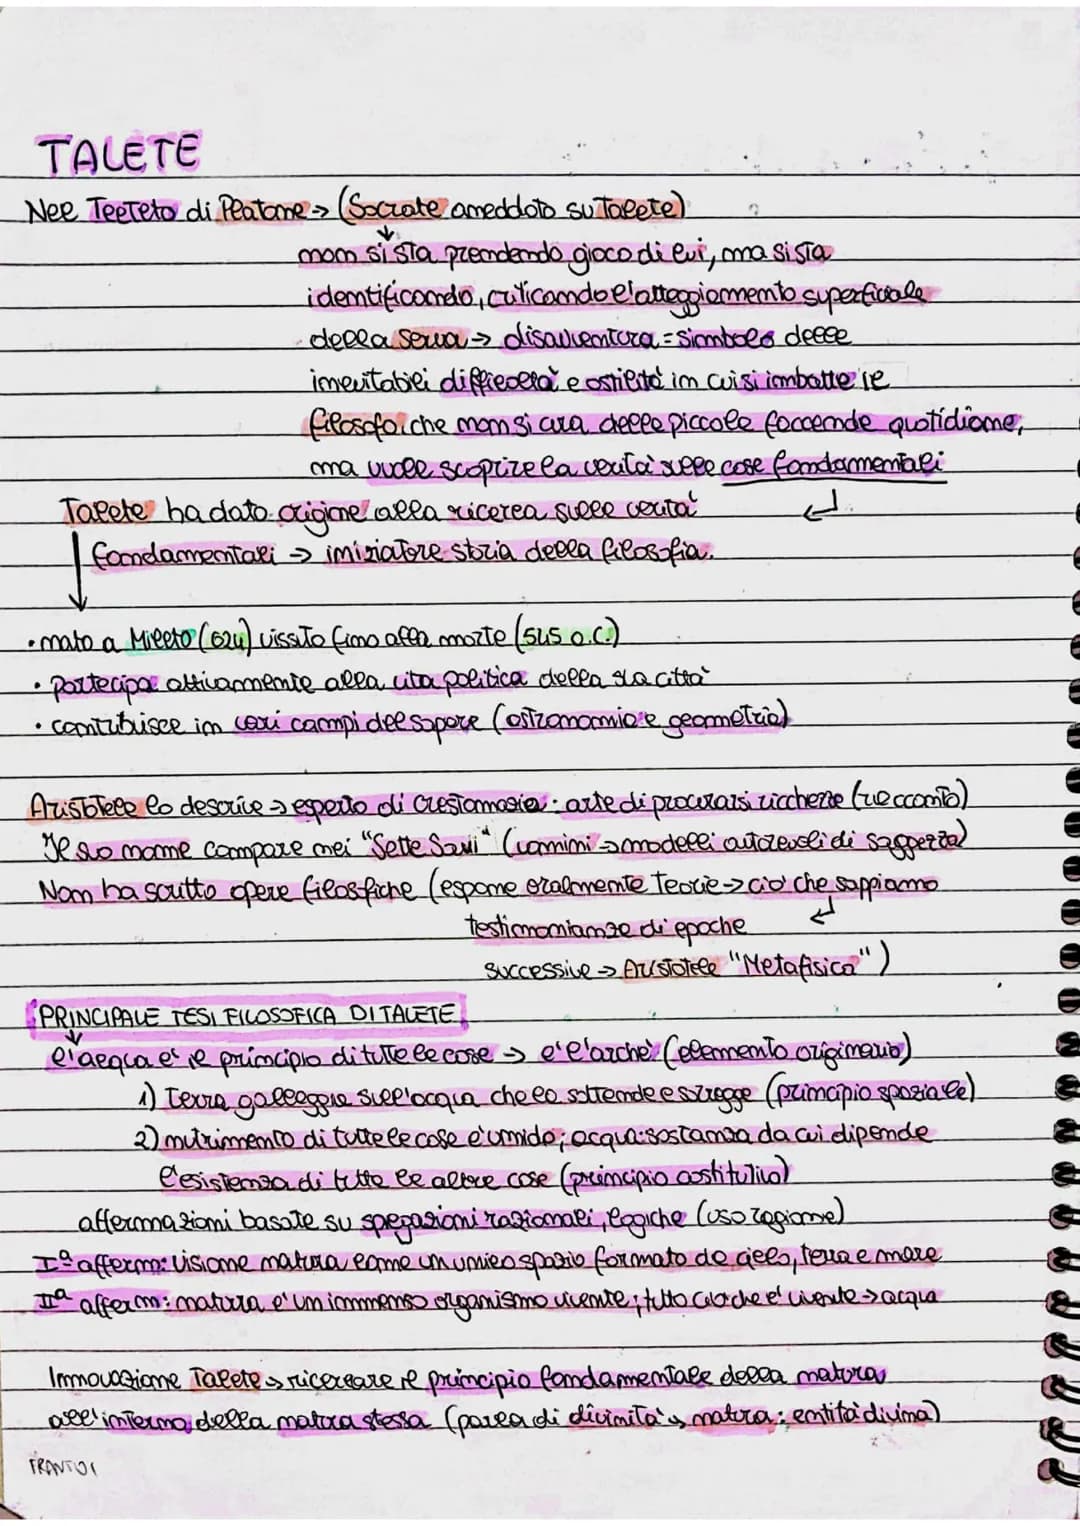 TALETE
Nel Teeteto di Platone → (Socrate aneddoto su Talete)
non si sta prendendo gioco di lui, ma si sta
identificando, criticando l'atteggiamento superficiale
della serva → disavventura = simbolo delle
inevitabili difficoltà e ostilità in cui si imbatte il
filosofo che non si cura delle piccole faccende quotidiane,
ma vuole scoprire la verità sulle cose fondamentali
Talete ha dato origine alla ricerca sulle verità
fondamentali → iniziatore storia della filosofia.
• nato a Mileto (624) vissuto fino alla morte (545 a.C.)
• partecipa attivamente alla vita politica della sua città
• contribuisce in vari campi del sapere (astronomia e geometria)
Aristotele lo descrive → esperto di crestomasia: arte di procurarsi ricchezze (racconto)
Il suo nome compare nei "Sette Savi" (uomini → modelli autorevoli di saggezza)
Non ha scritto opere filosfiche (espone oralmente teorie → ciò che sappiamo
testimonianze di epoche
successive → Aristotele "Metafisica")
PRINCIPALE TESI FILOSOFICA DI TALETE
l'acqua è il principio di tutte le cose → è l'archè (elemento originario)
1) Terra galleggia sull'acqua che la sottende e sorregge (principio spaziale)
2) nutrimento di tutte le cose è umido; acqua: sostanza da cui dipende
l'esistenza di tutte le altre cose (principio costitutivo)
affermazioni basate su spiegazioni razionali, logiche (uso ragione)
Iª afferm: visione natura come un unico spazio formato da cielo, terra e mare
IIª afferm: natura è un immenso organismo vivente; tutto ciò che è vivente → acqua
Innovazione Talete → ricercare il principio fondamentale della natura
all'interno della natura stessa (parla di divinità → natura: entità divina)